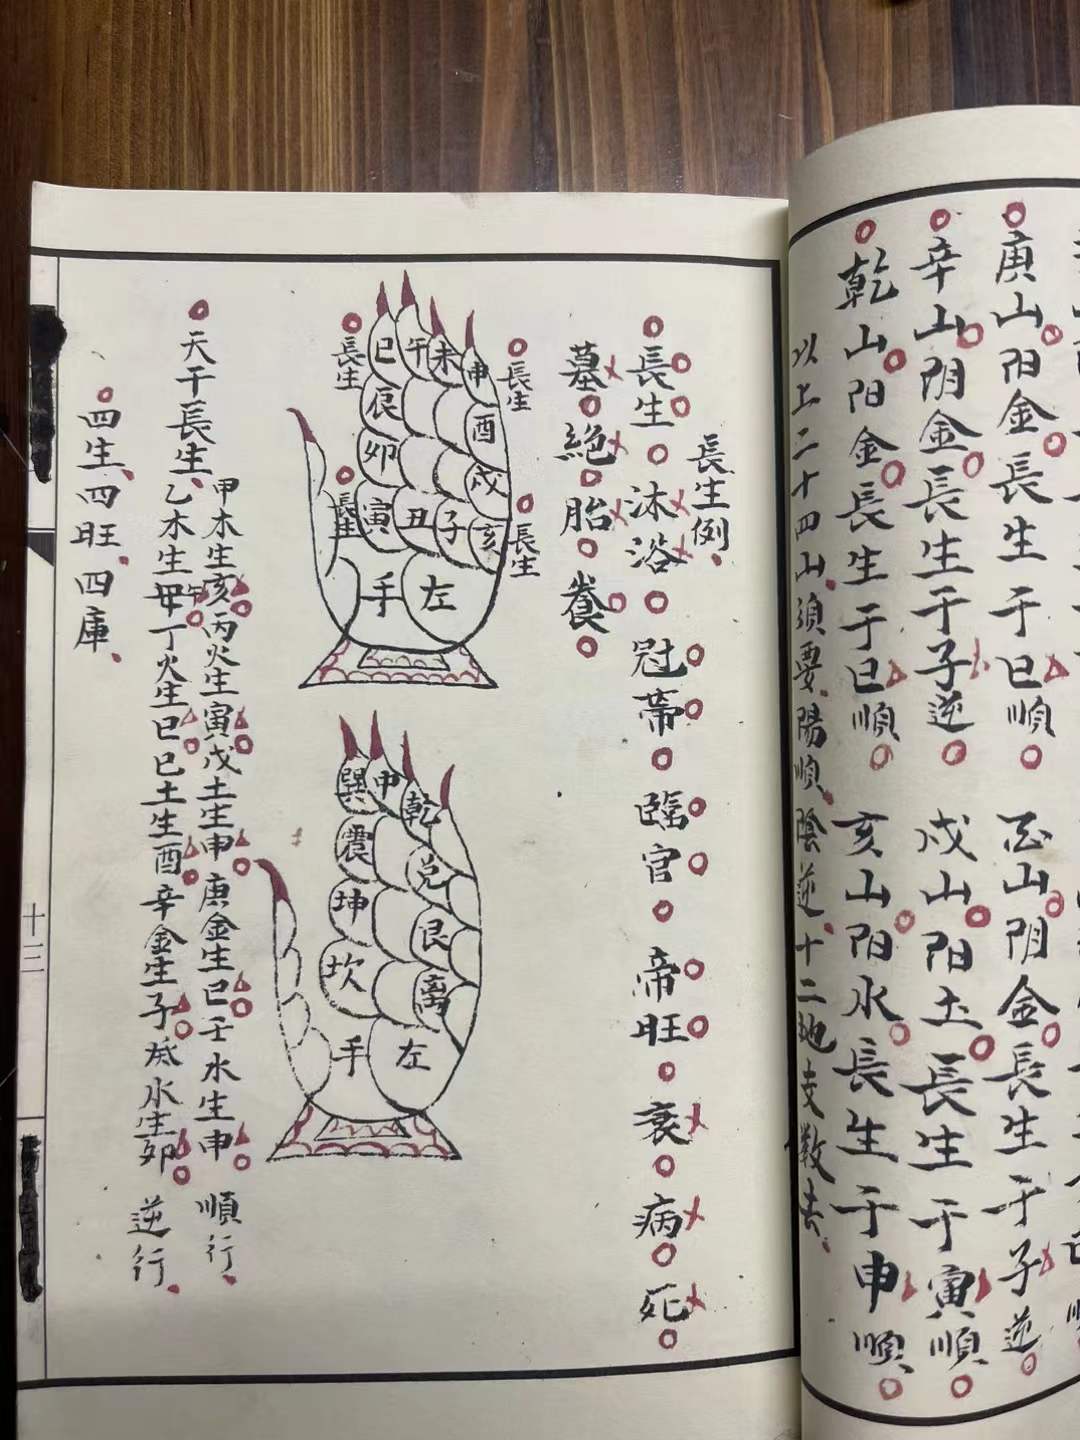 庚山阳金長生于巳順 酉山阴金長生于子逆
辛山阴金長生于子逆 戍山阳土長生于寅順
乾山阳金長生于巳順 亥山阳水長生于申順
以上二十四山須要陽順陰逆十二地支数去
長生例
長生沐浴冠帶臨官帝旺衰病死
墓絶胎養
長生
長生
長生
長生
巳午未申
辰酉
卯戍
寅丑子亥
左手
巽中乾
震兌
坤艮
坎离
左手
天干長生
甲木生亥丙火生寅戊土生申庚金生巳壬水生申 順行
乙木生午丁火生巳巳土生酉辛金生子癸水生卯 逆行
四生四旺四庫
十三